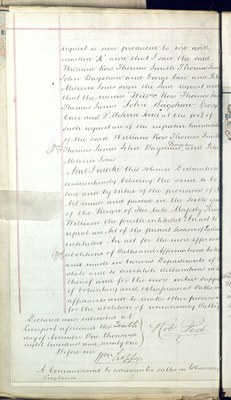 request is now produced to me and
marked "A" and that I saw the said
William Row Thomas Smith Thomas Jones
John Bagshaw and George Carr and John
Melvin Jones sign the said request and
that the names William Row Thomas Smith
Thomas Jones John Bagshaw George
Carr and J. Melvin Jones at the foot of
such request are of the respective handwriting
of the said William Row Thomas Smith
Thomas Jones John Bagshaw and John
Melvin Jones
And I make this solemn Declaration
conscientiously believing the same to be
true and by virtue of the provisions of an
Act made and passed in the Sixth year
of the Reign of His late Majesty King
William the fourth entitled "An Act to
repeal an Act of the present Session of Parliament
entitled An act for the more effectual
abolition of Oaths and Affirmations taken
and made in various Departments of the
State and to substitute declarations in lieu
thereof and for the more entire suppression
of voluntary and extrajudicial Oaths and
affidavits and to make other provisions
for the abolition of unnecessary Oaths"
Declared and subscribed at
Liverpool aforesaid the Tenth
day of November One thousand
eight hundred and seventy one
Before me
A Commissioner to administer oaths in Chancery
England